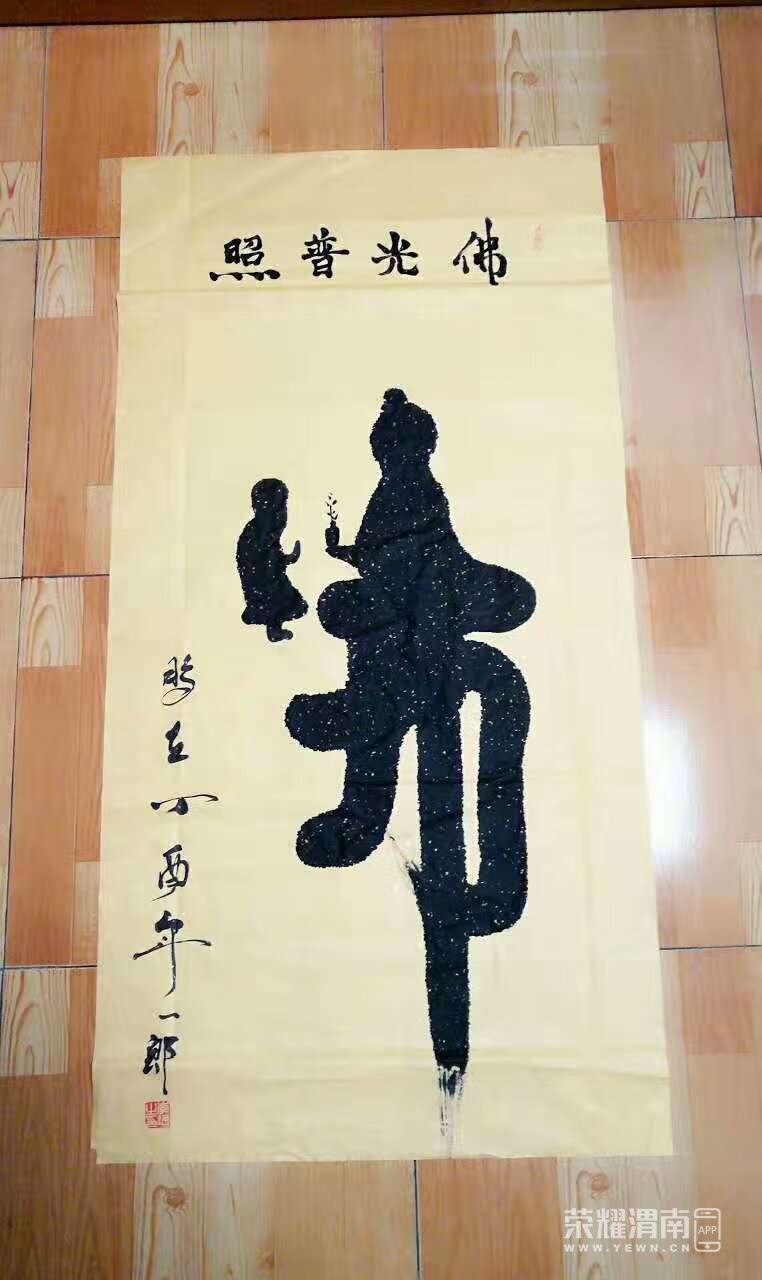 佛光普照
岁在丁酉年一郎
荣耀渭南APP
WWW.YEWN.CN